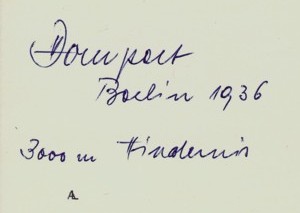 Dompert
Berlin 1936
3000 m Hindernis
A